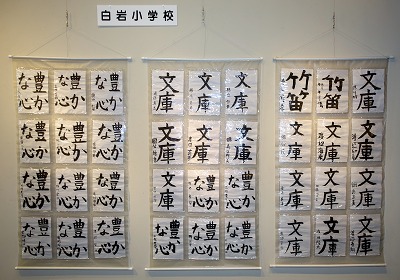 白岩小学校
豊か
な心
豊か
な心
豊か
な心
豊か
な心
豊か
な心
豊か
な心
豊か
な心
豊か
な心
豊か
な心
豊か
な心
豊か
な心
豊か
な心
文庫
文庫
文庫
文庫
文庫
文庫
文庫
豊か
な心
豊か
な心
豊か
な心
豊か
な心
豊か
な心
竹笛
竹笛
文庫
文庫
文庫
文庫
文庫
文庫
文庫
文庫
文庫
文庫